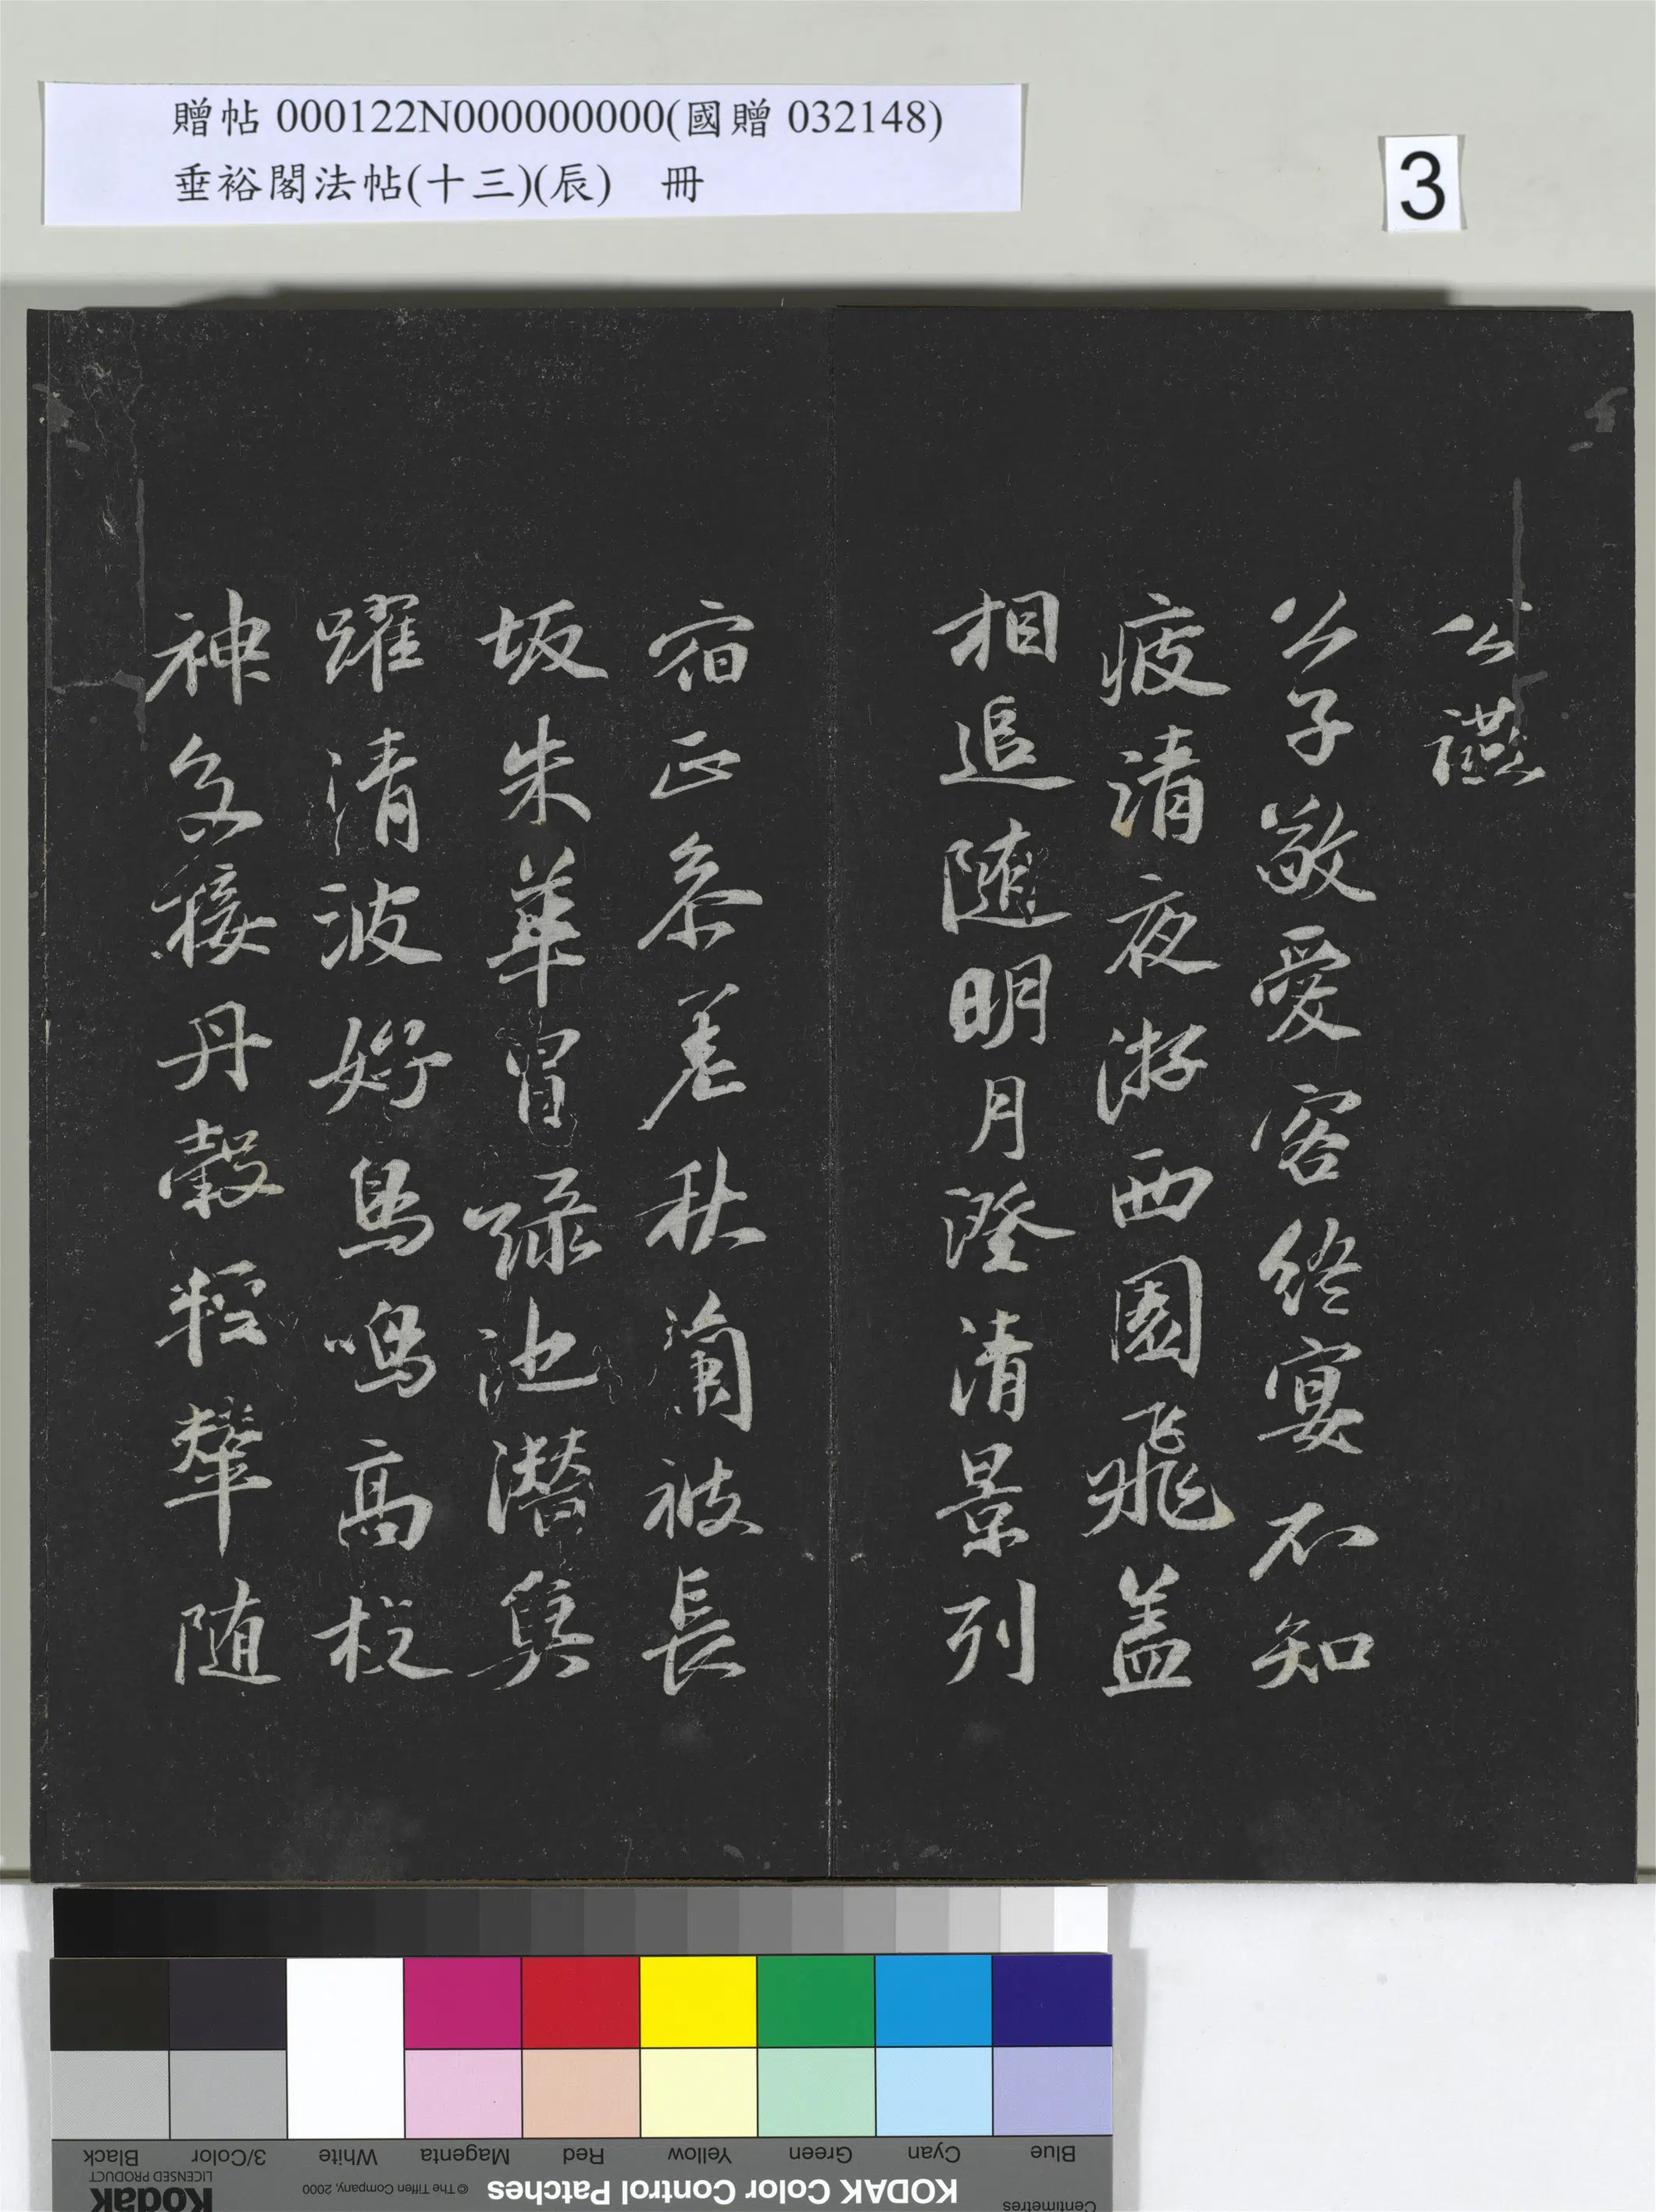 贈帖 000122N000000000(國贈 032148)
垂裕閣法帖(十三)(辰) 冊
3
公讌
公子敬愛客終宴不知
疲清夜游西園飛盖
相追隨明月澄清景列
宿正參差秋蘭被長
坂朱華冒綠池潛魚
躍清波好鳥鳴高枝
神飈接丹轂輕輦随
Blue Cyan Green Yellow Red Magenta White 3/Color Black
Centimetres
KODAK Color Control Patches
© The Tiffen Company, 2000
Kodak
LICENSED PRODUCT